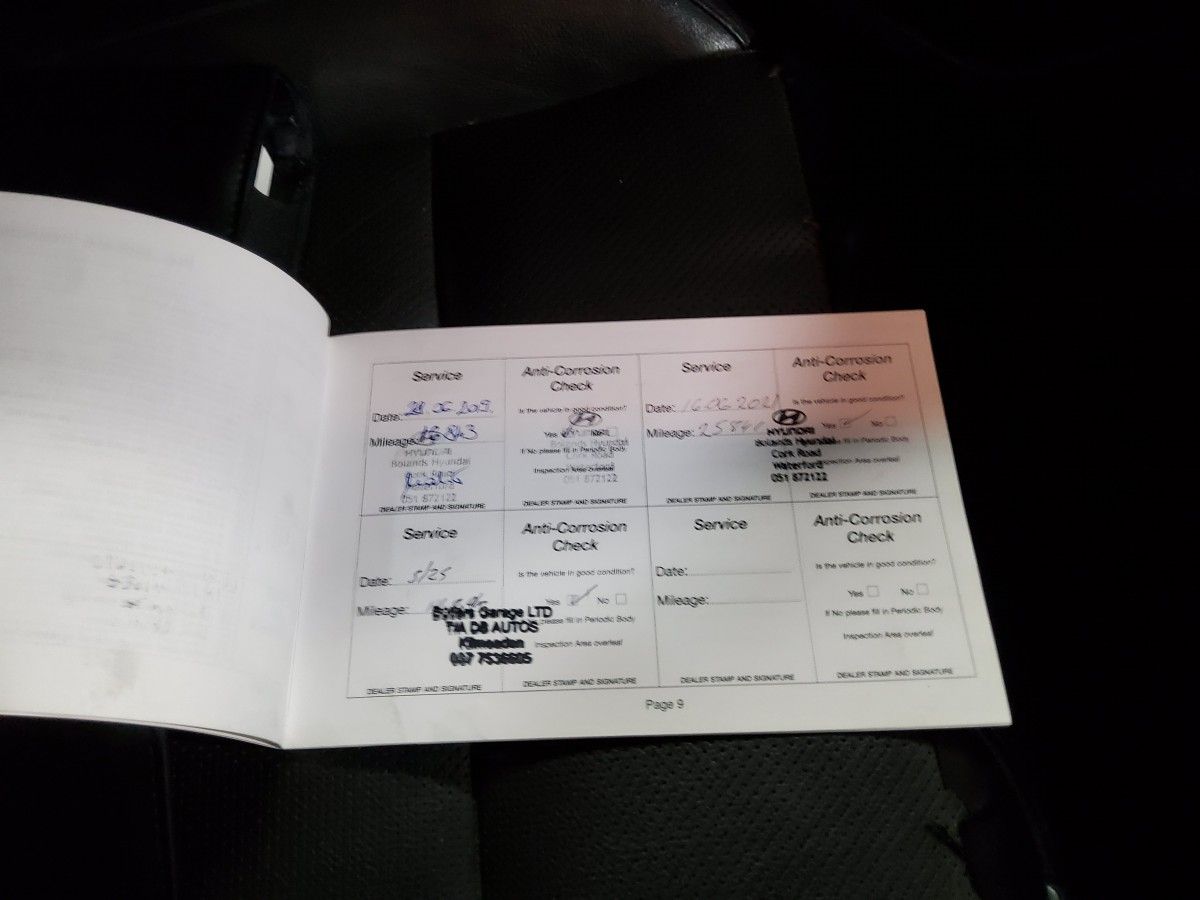 Service
Anti-Corrosion
Check
Date:
Is the vehicle in good condition?
Mileage:
Yes
HYUNDAI
Bolands Hyundai
Cork Road
051 872122
If No please fill in Periodic Body
Inspection Area overleaf
051 872122
DEALER STAMP AND SIGNATURE
DEALER STAMP AND SIGNATURE
Service
Anti-Corrosion
Check
Date: 16.06.2021
Is the vehicle in good condition?
Mileage:
Yes No
HYUNDAI
Bolands Hyundai
Cork Road
Waterford
051 872122
fill in Periodic Body
Inspection Area overleaf
DEALER STAMP AND SIGNATURE
DEALER STAMP AND SIGNATURE
Service
Anti-Corrosion
Check
Date: 5/25
Is the vehicle in good condition?
Mileage:
Yes No
Garage LTD
T/A DB AUTOS
Kilmeaden
please fill in Periodic Body
Inspection Area overleaf
DEALER STAMP AND SIGNATURE
DEALER STAMP AND SIGNATURE
Service
Anti-Corrosion
Check
Date:
Is the vehicle in good condition?
Mileage:
Yes No
If No please fill in Periodic Body
Inspection Area overleaf
DEALER STAMP AND SIGNATURE
DEALER STAMP AND SIGNATURE
Page 9